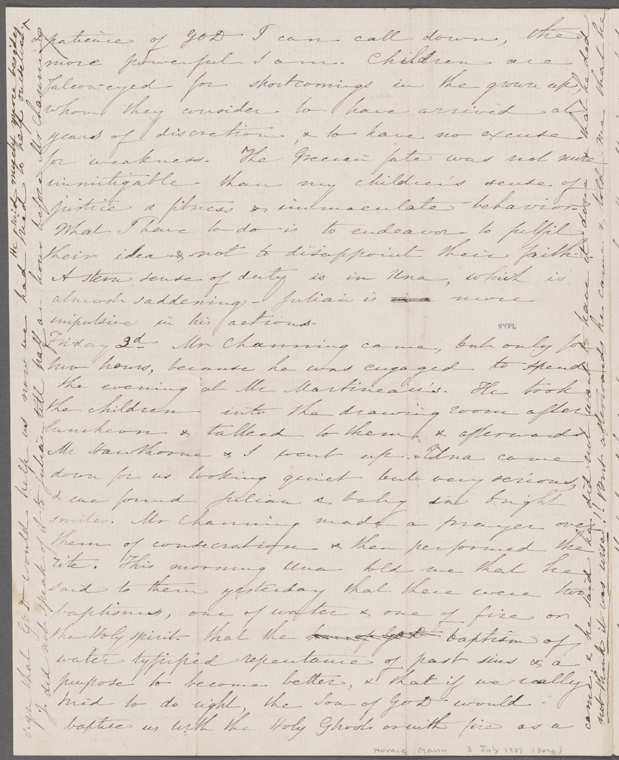 patience of GOD I can call down, the
more powerful I am. Children are
falcon-eyed for shortcomings in the grown up
whom they consider to have arrived at
years of discretion, & to have no excuse
for weakness. The Grecian fate was not more
immitigable than my children's sense of
justice & fitness & immaculate behavior
What I have to do is to endeavor to fulfil
their idea & not to disappoint their faith.
A stern sense of duty is in Una, which is
almost saddening - Julian is more
impulsive in his actions.
Friday 3d Mr Channing came, but only for
two hours, because he was engaged to spend
the evening at Mr Martineau's. He took
the children into the drawing room after
luncheon & talked to them, & afterwards
Mr Hawthorne & I went up. Una came
down for us looking quiet but very serious,
& we found Julian & baby in bright
smiles. Mr Channing made a prayer over
them of consecration & then performed the
rite. This morning Una told me that he
said to them yesterday that there were two
baptisms, one of water & one of fire or
the Holy spirit - that the baptism of
water typified repentance of past sins & a
purpose to become better, & that if we really
tried to do right, the Son of GOD would
baptise us with the Holy Ghost or with fire as a
that GOD would help us now we had tried to help ourselves
I did not speak of it to Julian till half an hour before Mr Channing
came & he said he did not want to have it done
not think it was wise!! But afterwards he came & told me that he
NYPL
Horace Mann 3 July 1857 (Song)